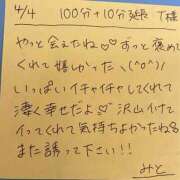 4/4 100分+10分延長 T様
やっと会えたね♡♡ずっと褒めて
くれて嬉しかった＼(^o^)/
いっぱいイチャイチャしてくれて
凄く幸せだよ♡沢山イけて
イってくれて気持ちよかったね
また誘って下さい!!
みと